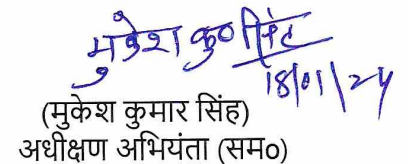 मुकेश कु० सिंह
18/01/24
(मुकेश कुमार सिंह)
अधीक्षण अभियंता (सम०)